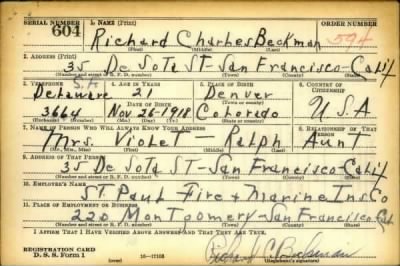 SERIAL NUMBER 1. NAME (Print) ORDER NUMBER
604 Richard Charles Beckman 594
(First) (Middle) (Last)
2. ADDRESS (Print)
35 De Soto St-San Francisco-Calif
(Number and street or R. F. D. number) (Town) (County) (State)
3. TELEPHONE 4. AGE IN YEARS 5. PLACE OF BIRTH 6. COUNTRY OF CITIZENSHIP
S.F.
Delaware 21 Denver
DATE OF BIRTH (Town or county)
3664 Nov. 26-1918 Colorado U.S.A
(Exchange) (Number) (Mo.) (Day) (Yr.) (State or country)
7. NAME OF PERSON WHO WILL ALWAYS KNOW YOUR ADDRESS 8. RELATIONSHIP OF THAT PERSON
Mrs. Violet - Ralph Aunt
(Mr., Mrs., Miss) (First) (Middle) (Last)
9. ADDRESS OF THAT PERSON
35 De Soto ST-San Francisco-Calif
(Number and street or R. F. D. number) (Town) (County) (State)
10. EMPLOYER'S NAME
ST. Paul Fire & Marine Ins. Co
11. PLACE OF EMPLOYMENT OR BUSINESS
220 Montgomery-San Francisco-Cal.
(Number and street or R. F. D. number) (Town) (County) (State)
I AFFIRM THAT I HAVE VERIFIED ABOVE ANSWERS AND THAT THEY ARE TRUE.
REGISTRATION CARD
D. S. S. Form 1 (over) 16-17105 Richard C. Beckman
(Registrant's signature)